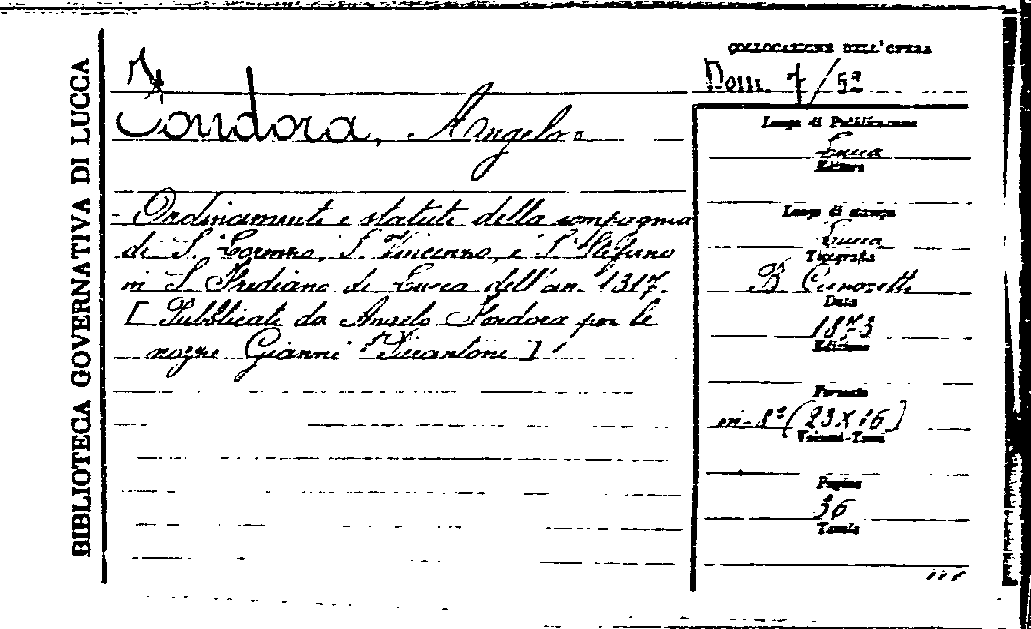 BIBLIOTECA GOVERNATIVA DI LUCCA
Tondora, Angelo
Ordinamenti e statuti della compagnia
di S. Lorenzo, S. Vincenzo, e S. Stefano
in S. Frediano di Lucca dell'an. 1317.
[Pubblicati da Angelo Tondora per le
nozze Gianni Diecantoni]
COLLOCAZIONE DELL'OPERA
Dom. 7/52
Luogo di Pubblicazione
Lucca
Editore
Luogo di stampa
Lucca
Tipografia
B. Canovetti
Data
1873
Edizione
Formato
in-8° (23x16)
Volumi-Tomi
Pagine
36
Tavole